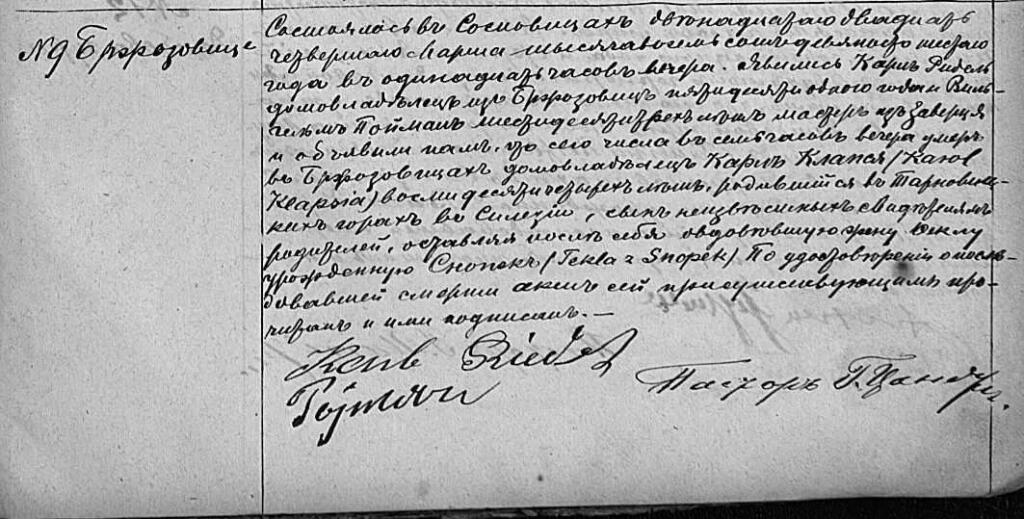 № 9 Бржозовице
Состоялось въ Сосновицахъ двѣнадцатаго двадцать
четвертаго Марта тысяча восемь сотъ девяносто шестаго
года въ одинадцать часовъ вечера. Явились Карлъ Ридель
домовладѣлецъ изъ Бржозовицъ пятидесяти одного года и Виль-
гельмъ Пойманъ шестидесяти трехъ лѣтъ мастеръ изъ Заверця
и объявили намъ, что сего числа въ семь часовъ вечера умеръ
въ Бржозовицахъ домовладѣлецъ Карлъ (Karol
) восмидесяти четырехъ лѣтъ, родившійся въ Тарновиц-
кихъ горахъ въ Силезіи, сынъ неизвѣстныхъ свидѣтелямъ
родителей, оставляя послѣ себя овдовѣвшую жену Теклу
урожденную Снопекъ (Tekla z Snopek) По удостовѣреніи о послѣ-
довавшей смерти актъ сей присутствующимъ про-
читанъ и ими подписанъ. —
Karl Riedel
Pojman
Пасторъ Г.